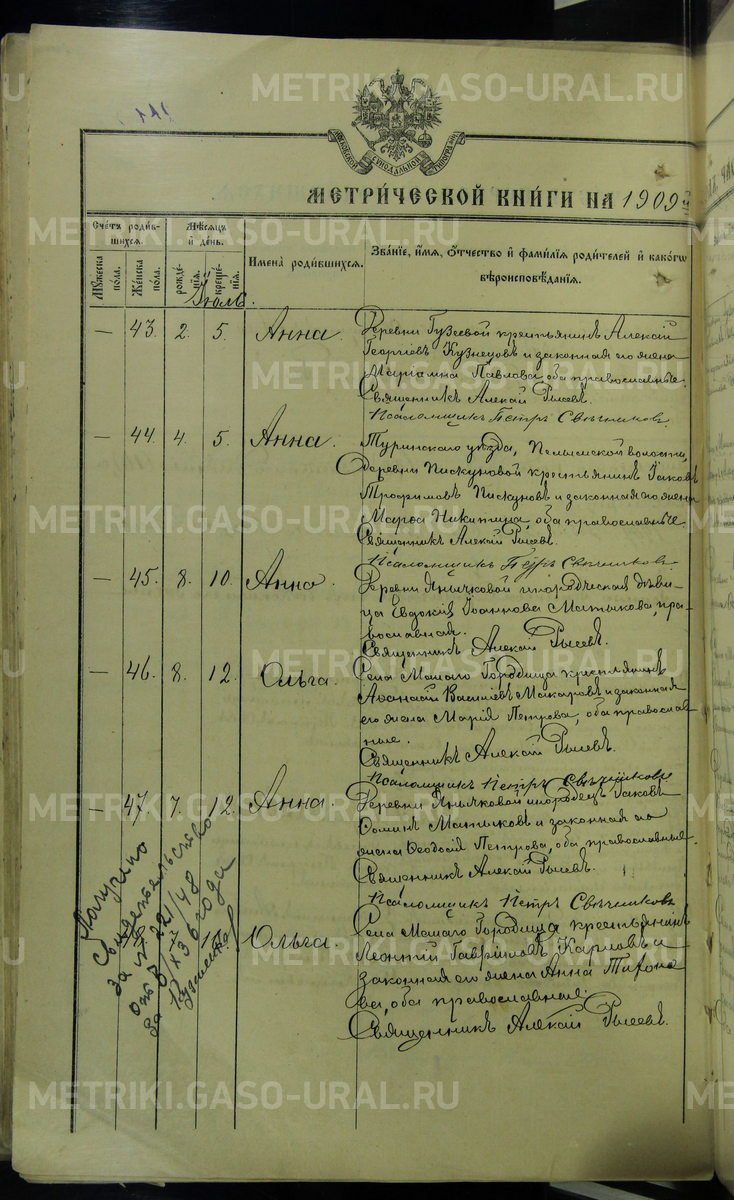 METRIKI.GASO-URAL.RU
МОСКОВСКОЙ СУНОДАЛЬНОЙ ТИПОГРАФІИ
МЕТРИ́ЧЕСКОЙ КНИ́ГИ НА 1909 й
Счетъ роди́в-шихся.
Мѣ́сяцъ и҆ де́нь.
Имена̀ роди́вшихся.
Зва́нїе, и҆́мя, ѻ҆́тчество и҆ фами́лїѧ роди́телей и҆ како́гѡ вѣроисповѣ́данїѧ.
Мꙋ́жеска по́ла.
Же́нска по́ла.
рожде́нїѧ.
креще́нїѧ.
Іюль.
— 43. 2. 5. Анна.
Деревни Гузеевой крестьянинъ Алексій
Георгіевъ Кузнецовъ и законная его жена
Маріамна Павлова, оба православные.
Священникъ Алексій Рысевъ.
Псаломщикъ Петръ Свѣчниковъ
— 44. 4. 5. Анна.
Туринскаго уѣзда, Пелымской волости,
деревни Пискуновой крестьянинъ Іаковъ
Трофимовъ Пискуновъ и законная его жена
Марѳа Никитина, оба православные.
Священникъ Алексій Рысевъ.
Псаломщикъ Петръ Свѣчниковъ
— 45. 8. 10. Анна.
Деревни Янычковой инородческая дѣви-
ца Евдокія Іоаннова Матыкова, пра-
вославная.
Священникъ Алексій Рысевъ.
— 46. 8. 12. Ольга.
Села Малаго Городища крестьянинъ
Аѳанасій Васильевъ Макаровъ и законная
его жена Марія Петрова, оба православ-
ные.
Священникъ Алексій Рысевъ.
Псаломщикъ Петръ Свѣчниковъ
— 47. 7. 12. Анна.
Деревни Янычковой инородецъ Іаковъ
Ѳоминъ Матыковъ и законная его
жена Ѳеодосія Петрова, оба православные.
Священникъ Алексій Рысевъ.
Псаломщикъ Петръ Свѣчниковъ
Ольга.
Села Малаго Городища крестьянинъ
Леонтій Гавріиловъ Карповъ и
законная его жена Анна Тихоно-
ва, оба православные.
Священникъ Алексій Рысевъ.
Получено
свидетельство